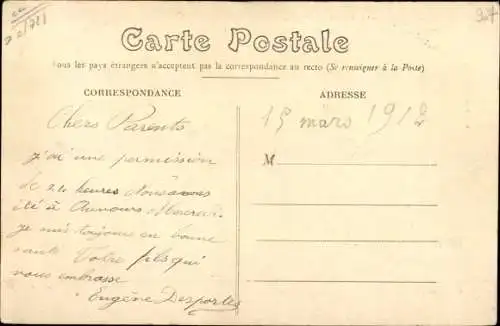 907
Carte Postale
Tous les pays étrangers n'acceptent pas la correspondance au recto (Se renseigner à la Poste)
CORRESPONDANCE
ADRESSE
15 mars 1912
M
Chers Parents
j'ai une permission
de 24 heures Nous avons
été à Auvours Mercredi
je suis toujours en bonne
santé Votre fils qui
vous embrasse
Eugène Desportes